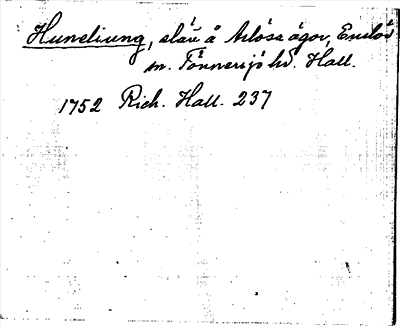 Huneliung, eläv å Årlösa ägor, Enslöv
sn. Tönnersjö hd. Hall.
1752 Rich. Hall. 237